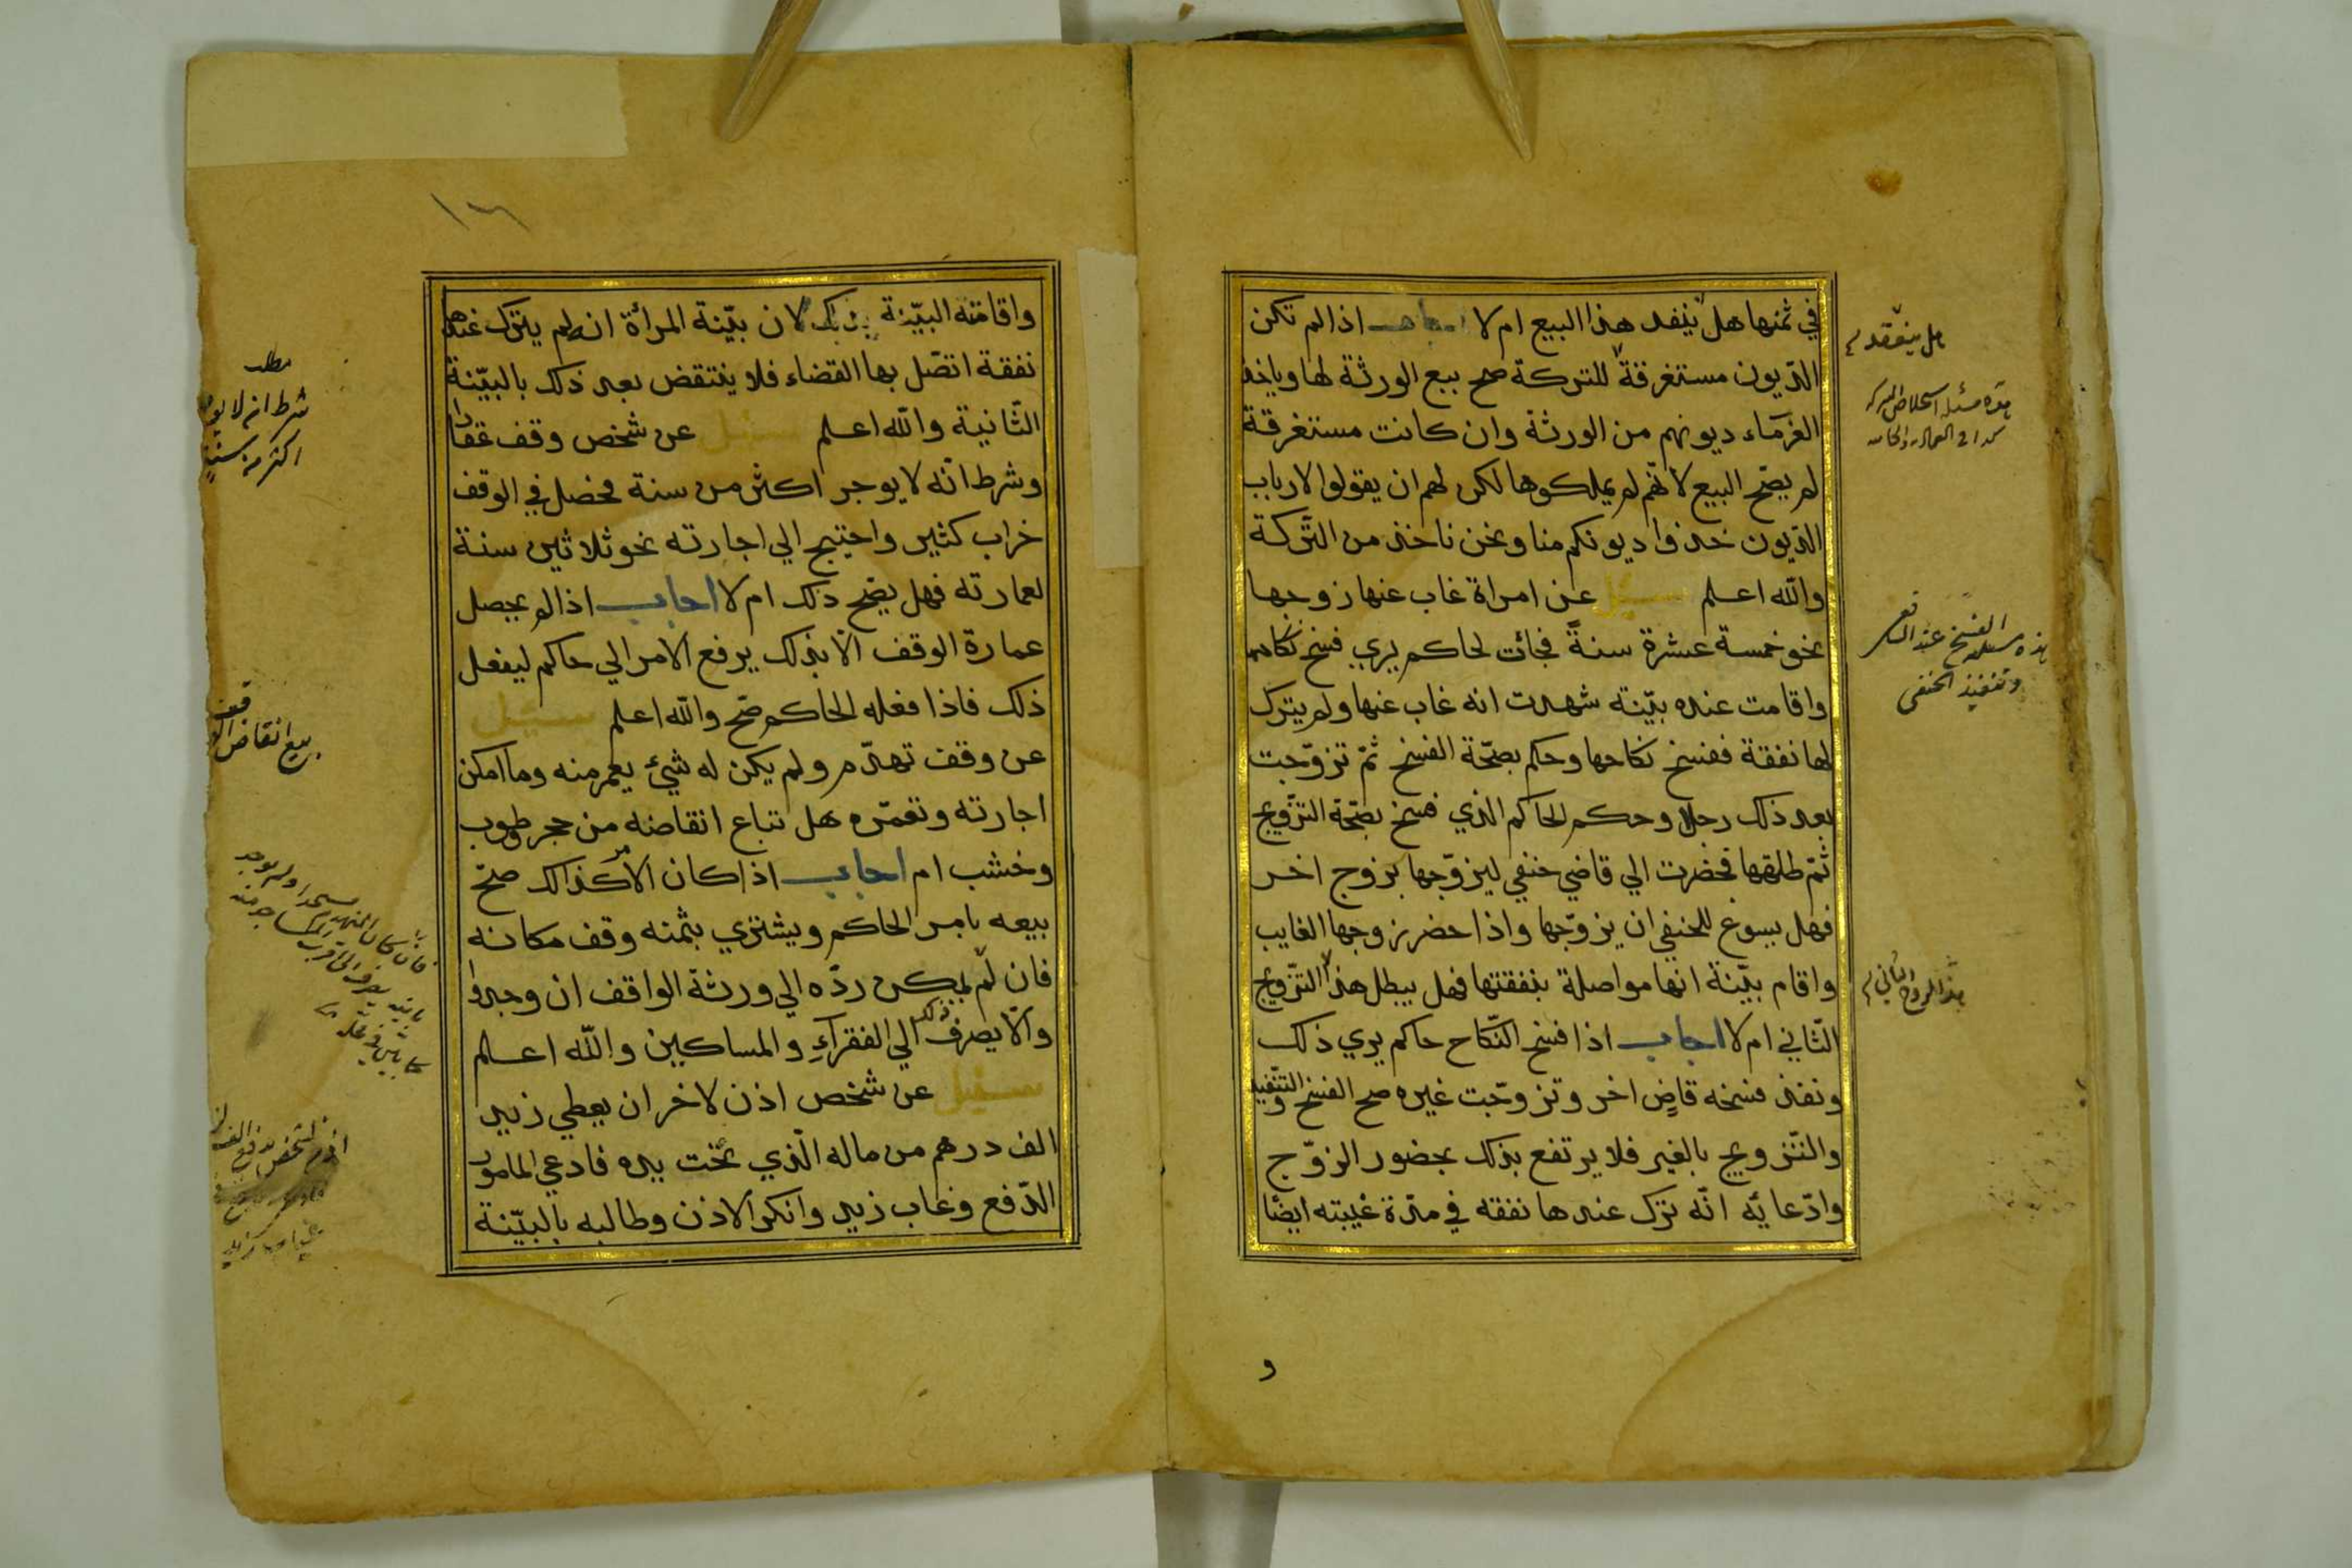 في ثمنها هل ينفد هذا البيع ام لا اجاب اذا لم تكن
الدّيون مستغرقة للتركة صح بيع الورثة لها وياخذ
الغرمآء ديونهم من الورثة وان كانت مستغرقة
لم يصحّ البيع لانّهم لم يملكوها لكن لهم ان يقولوا لارباب
الدّيون خذوا ديونكم منا ونحن ناخذ من التّركة
والله اعلم سئل عن امراة غاب عنها زوجها
نحو خمسة عشرة سنةً فجائت لحاكم يري فسخ نكاحها
واقامت عنده بيّنة شهدت انه غاب عنها ولم يترك
لها نفقة ففسخ نكاحها وحكم بصحّة الفسخ ثمّ تزوّجت
بعد ذلك رجلا وحكم الحاكم الذي فسخ بصحّة التزّويج
ثمّ طلقها فحضرت الي قاضي حنفي ليزوّجها بزوج اخر
فهل يسوغ للحنفي ان يزوّجها واذا حضر زوجها الغايب
واقام بيّنة انها مواصلة بنفقتها فهل يبطل هذا التّزويج
الثّاني ام لا اجاب اذا فسخ النّكاح حاكم يري ذلك
ونفذ فسخه قاضٍ اخر وتزوّجت غيره صح الفسخ والتنّفيذ
والتّزويج بالغير فلا يرتفع بذلك بحضور الزوّج
وادّعايّه انّه ترك عندها نفقه في مدّة غيبته ايضًا
هل ينعقد
هذه مسئلة
هذه مسئلة الفسخ عند الشافعي
وتنفيذ الحنفي
و
١٦
واقامته البيّنة بذلك لان بيّنة المرأة انه لم يترك عندها
نفقة اتصّل بها القضاء فلا ينتقض بعد ذلك بالبيّنة
الثّانية والله اعلم سئل عن شخص وقف عقارا
وشرط انّه لا يوجر اكثر من سنة فحصل في الوقف
خراب كثير واحتيج الي اجارته نحو ثلاثين سنة
لعمارته فهل يصّح ذلك ام لا اجاب اذا لم يحصل
عمارة الوقف الّا بذلك يرفع الامر الي حاكم ليفعل
ذلك فاذا فعله الحاكم صّح والله اعلم سئيل
عن وقف تهدّم ولم يكن له شيئ يعمر منه وما امكن
اجارته وتعمّره هل تباع انقاضه من حجر وطوب
وخشب ام اجاب اذا كان الامر كذالك صحّ
بيعه بامر الحاكم ويشتري بثمنه وقف مكانه
فان لّم يمكن ردّه الي ورثة الواقف ان وجدوا
والّا يصرف ذلك الي الفقرآءِ والمساكين والله اعلم
سئيل عن شخص اذن لاخر ان يعطي زيد
الف درهم من ماله الّذي تحت يده فادعي المامور
الدّفع وغاب زيد وانكر الاذن وطالبه بالبيّنة
مطلب
شرط انه لا يوجر
اكثر من سنة
بيع انقاض الوقف